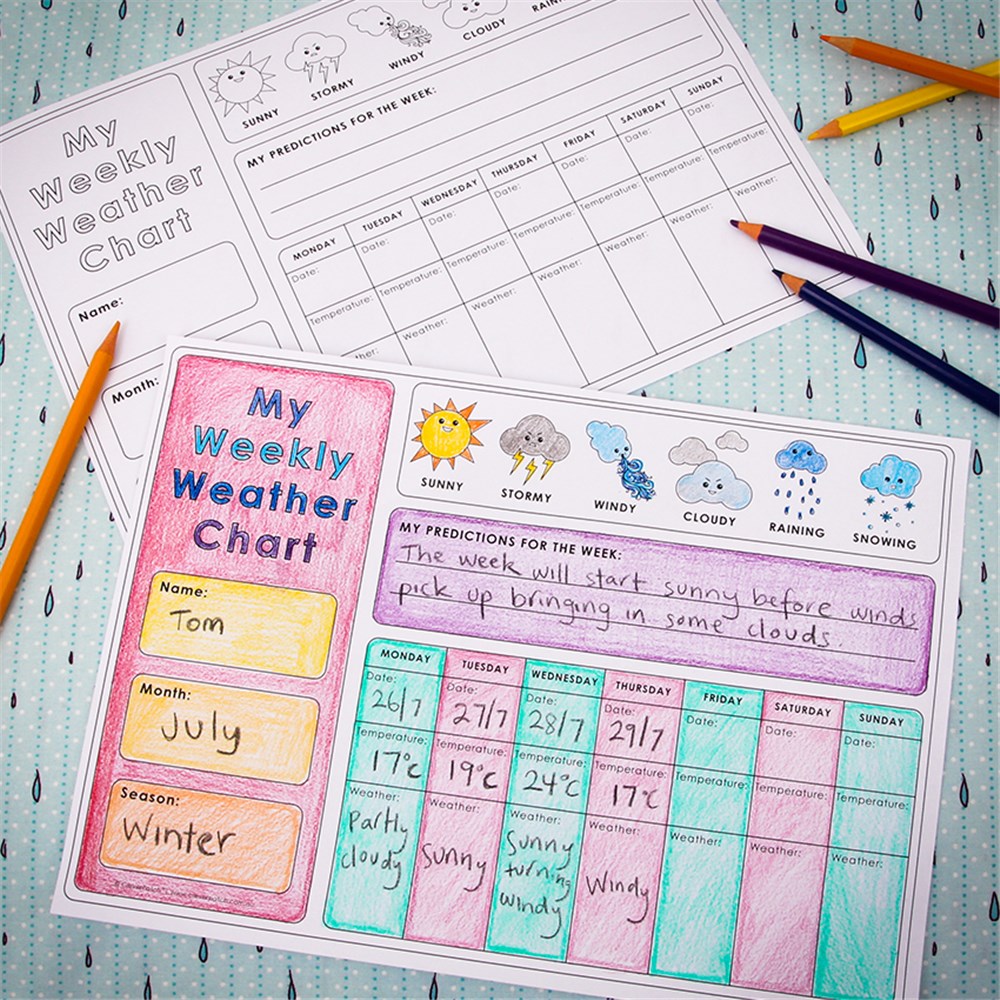 My
Weekly
Weather
Chart
Name:
Month:
SUNNY
STORMY
WINDY
CLOUDY
MY PREDICTIONS FOR THE WEEK:
MONDAY TUESDAY WEDNESDAY THURSDAY FRIDAY SATURDAY SUNDAY
Date: Date: Date: Date: Date: Date: Date:
Temperature: Temperature: Temperature: Temperature: Temperature: Temperature: Temperature:
Weather: Weather: Weather: Weather: Weather: Weather:
My
Weekly
Weather
Chart
Name:
Tom
Month:
July
Season:
Winter
SUNNY
STORMY
WINDY
CLOUDY
RAINING
SNOWING
MY PREDICTIONS FOR THE WEEK:
The week will start sunny before winds
pick up bringing in some clouds
MONDAY TUESDAY WEDNESDAY THURSDAY FRIDAY SATURDAY SUNDAY
Date: Date: Date: Date: Date: Date: Date:
26/7 27/7 28/7 29/7
Temperature: Temperature: Temperature: Temperature: Temperature: Temperature: Temperature:
17°c 19°c 24°c 17°c
Weather: Weather: Weather: Weather: Weather: Weather: Weather:
Partly Sunny
cloudy sunny turning Windy
windy